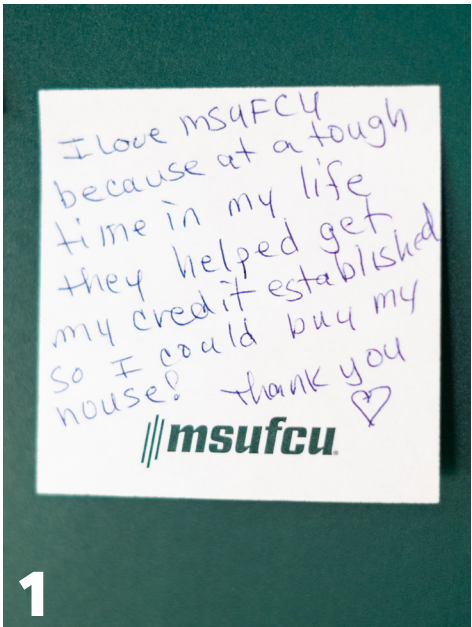 I love MSUFCU
because at a tough
time in my life
they helped get
my credit established
so I could buy my
house! Thank you
msufcu
1